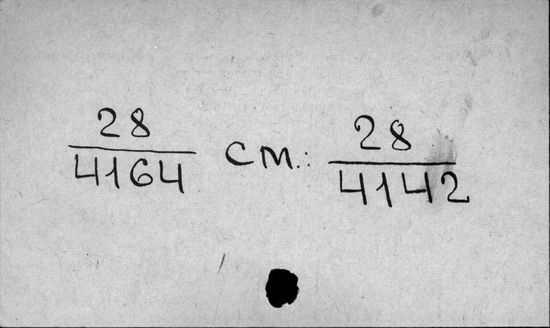 28/4164 см. 28/4142